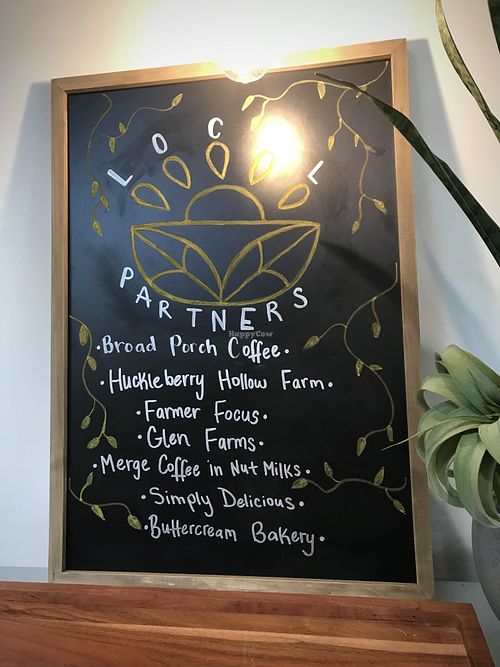 LOCAL
PARTNERS
HappyCow
•Broad Porch Coffee•
•Huckleberry Hollow Farm•
•Farmer Focus•
•Glen Farms•
•Merge Coffee in Nut Milks•
•Simply Delicious•
•Buttercream Bakery•